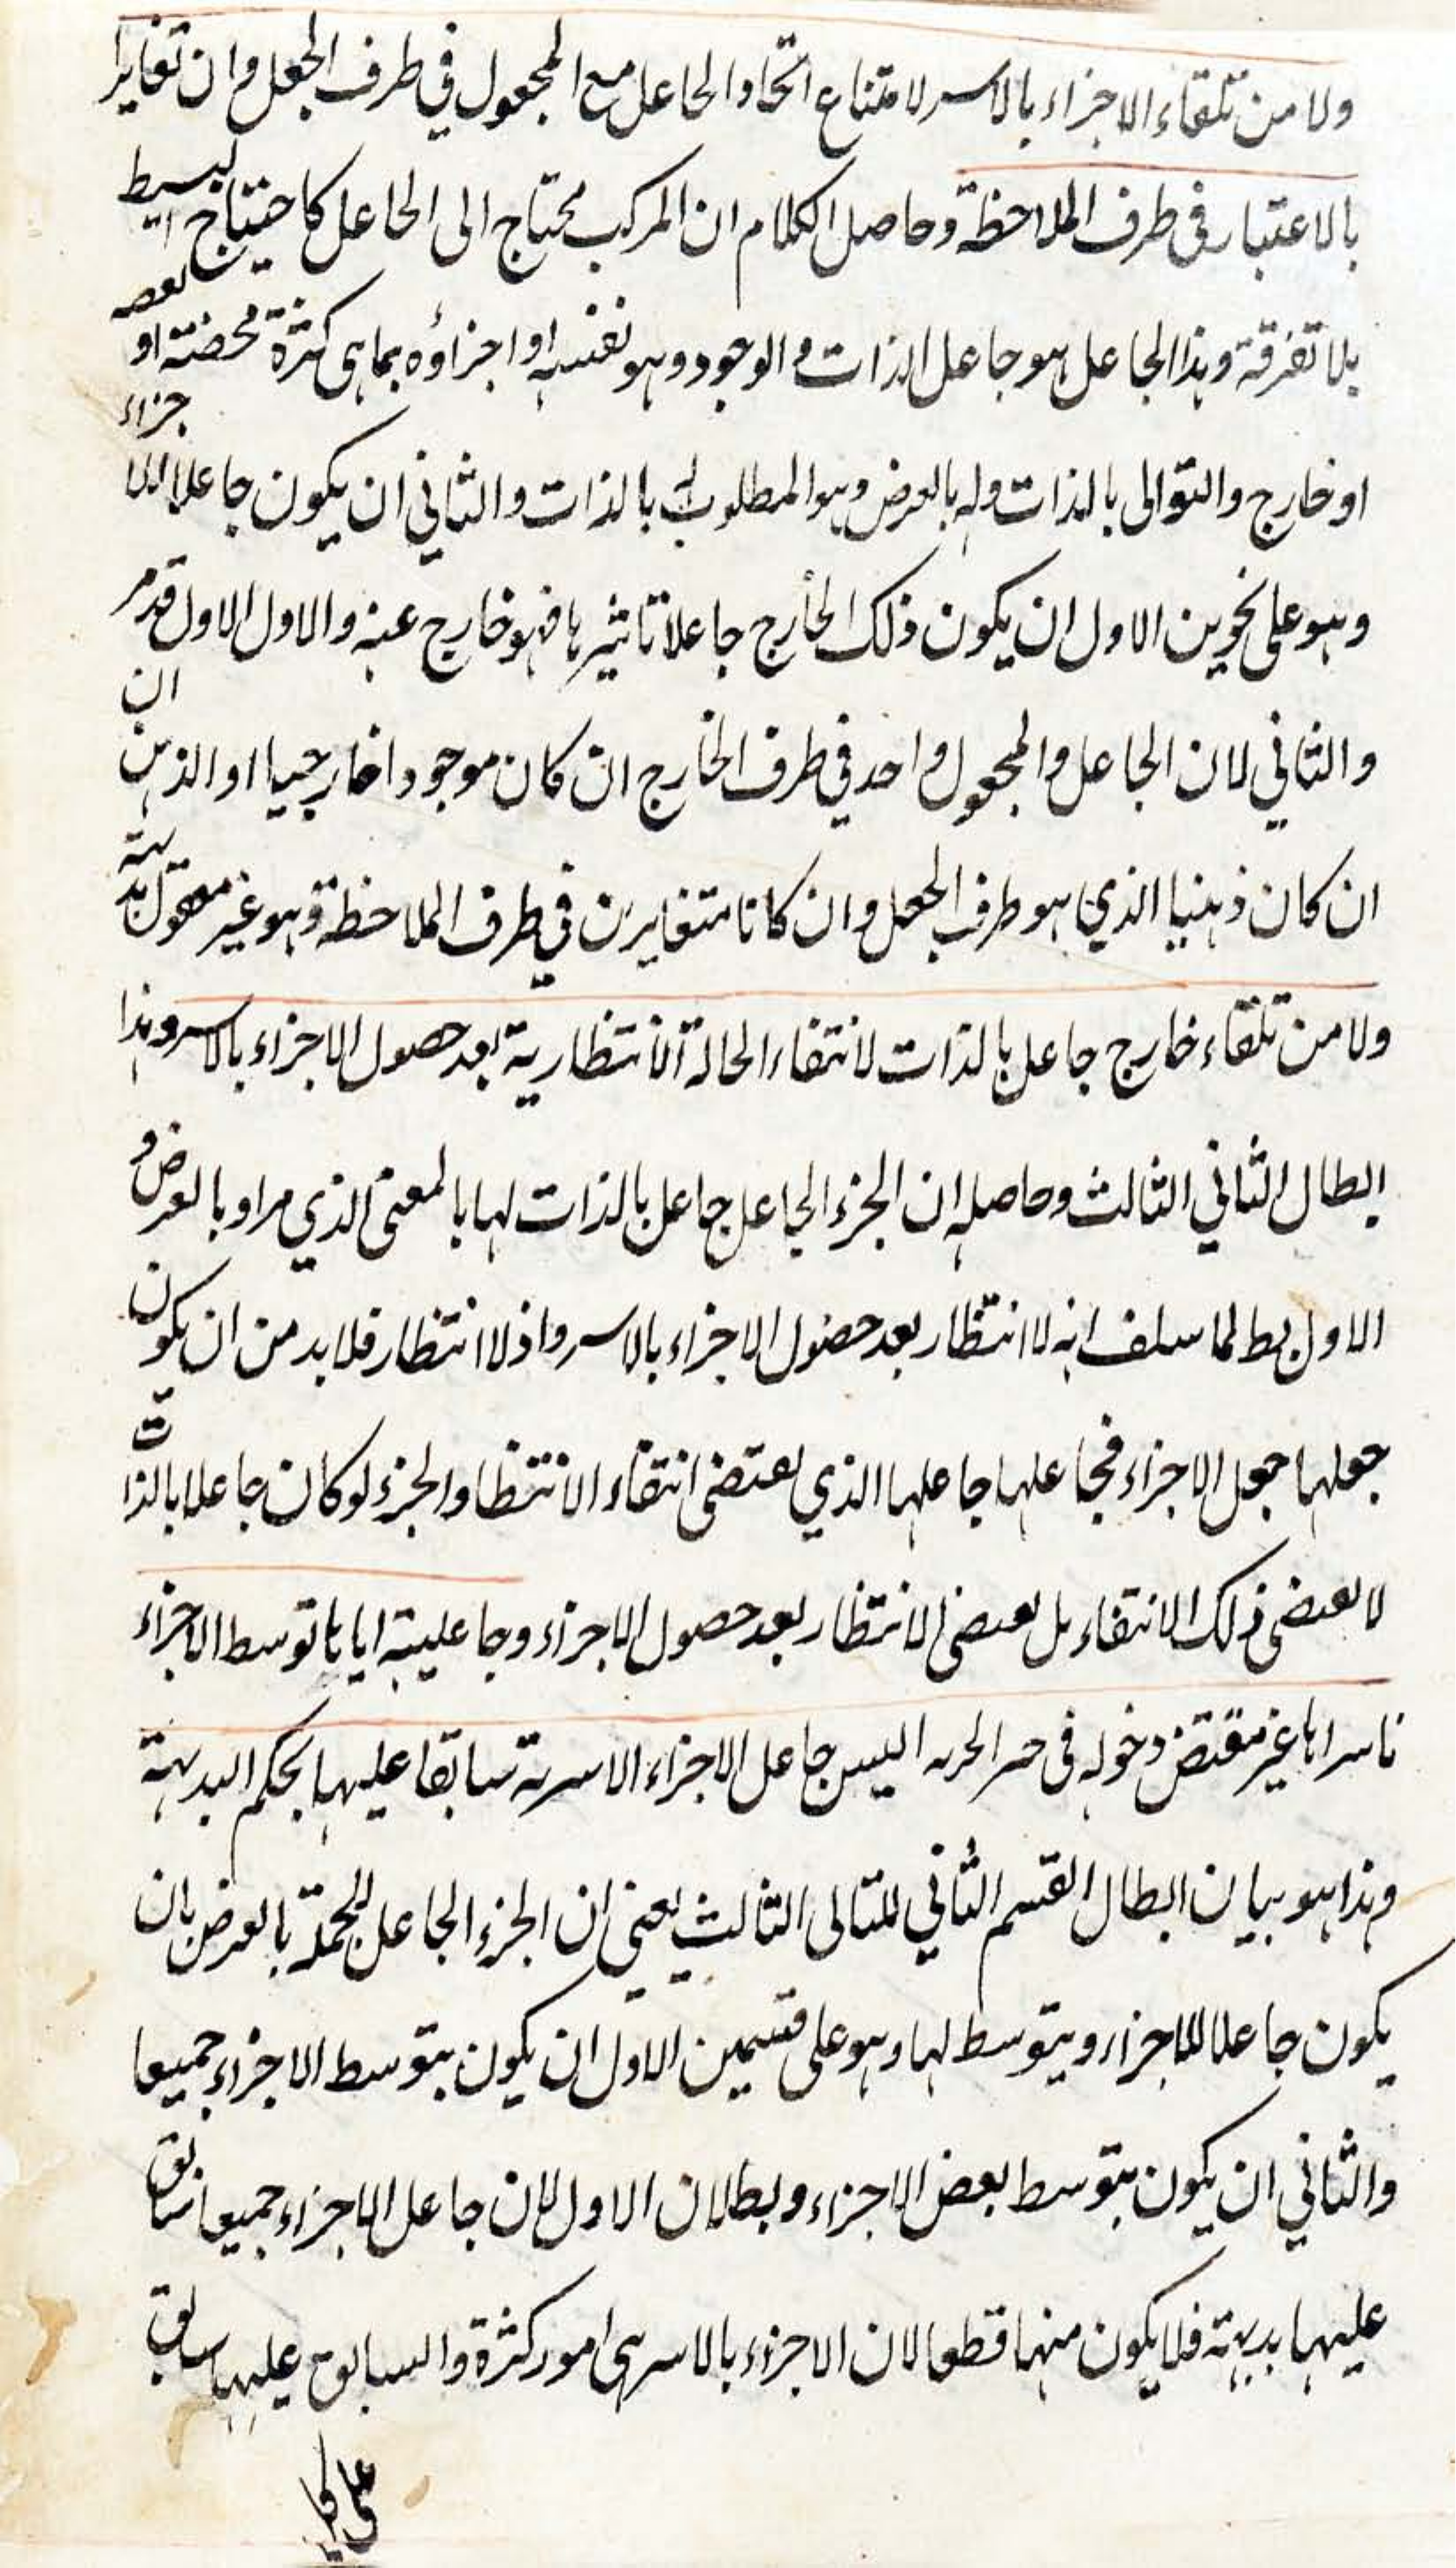 ولا من تلقاء الاجزاء بالاسر لامتناع اتحاد الجاعل مع المجعول في ظرف الجعل وان تغايرا
بالاعتبار في ظرف الملاحظة وحاصل الكلام ان المركب محتاج الى الجاعل كاحتياج البسيط
بلا تفرقة وهذا الجاعل هو جاعل الذات والوجود وهو نفسه او اجزاؤه بما هي كثرة محضة او بعضه
او خارج والتوالى بالذات وله بالعرض وهو المطلوب بالذات والثاني ان يكون جاعلا للاجزاء
وهو على نحوين الاول ان يكون ذلك الخارج جاعلا تاثيرها فهو خارج عنه والاول الاول قدمر
والثاني لان الجاعل والمجعول واحد في ظرف الخارج ان كان موجودا خارجيا او الذهن ان
ان كان ذهنيا الذي هو ظرف الجعل وان كانا متغايرين في ظرف الملاحظة وهو غير معقول بديهة
ولا من تلقاء خارج جاعل بالذات لانتفاء الحالة الانتظارية بعد حصول الاجزاء بالاسر وهذا
ابطال الثاني الثالث وحاصله ان الجزء الجاعل جاعل بالذات لها بالمعنى الذي مر او بالعرض و
الاول بط لما سلف انه لا انتظار بعد حصول الاجزاء بالاسر واذ لا انتظار فلا بد من ان يكون
جعلها جعل الاجزاء فجاعلها جاعلها الذي يقتضى انتفاء الانتظار والجزء لو كان جاعلا بالذات
لا يقتضى ذلك الانتفاء بل يقتضى الانتظار بعد حصول الاجزاء وجاعليته اياها بتوسط الاجزاء
باسرها غير مقتض دخوله في اليس جاعل الاجزاء الاسرية سابقا عليها بحكم البديهة
وهذا هو بيان ابطال القسم الثاني للتالى الثالث يعني ان الجزء الجاعل للجملة بالعرض بان
يكون جاعلا للاجزاء وبتوسط لها وهو على قسمين الاول ان يكون بتوسط الاجزاء جميعا
والثاني ان يكون بتوسط بعض الاجزاء وبطلان الاول لان جاعل الاجزاء جميعا سابق
عليها بديهة فلا يكون منها قطعا لان الاجزاء بالاسر هى امور كثرة والسابق عليها سابق